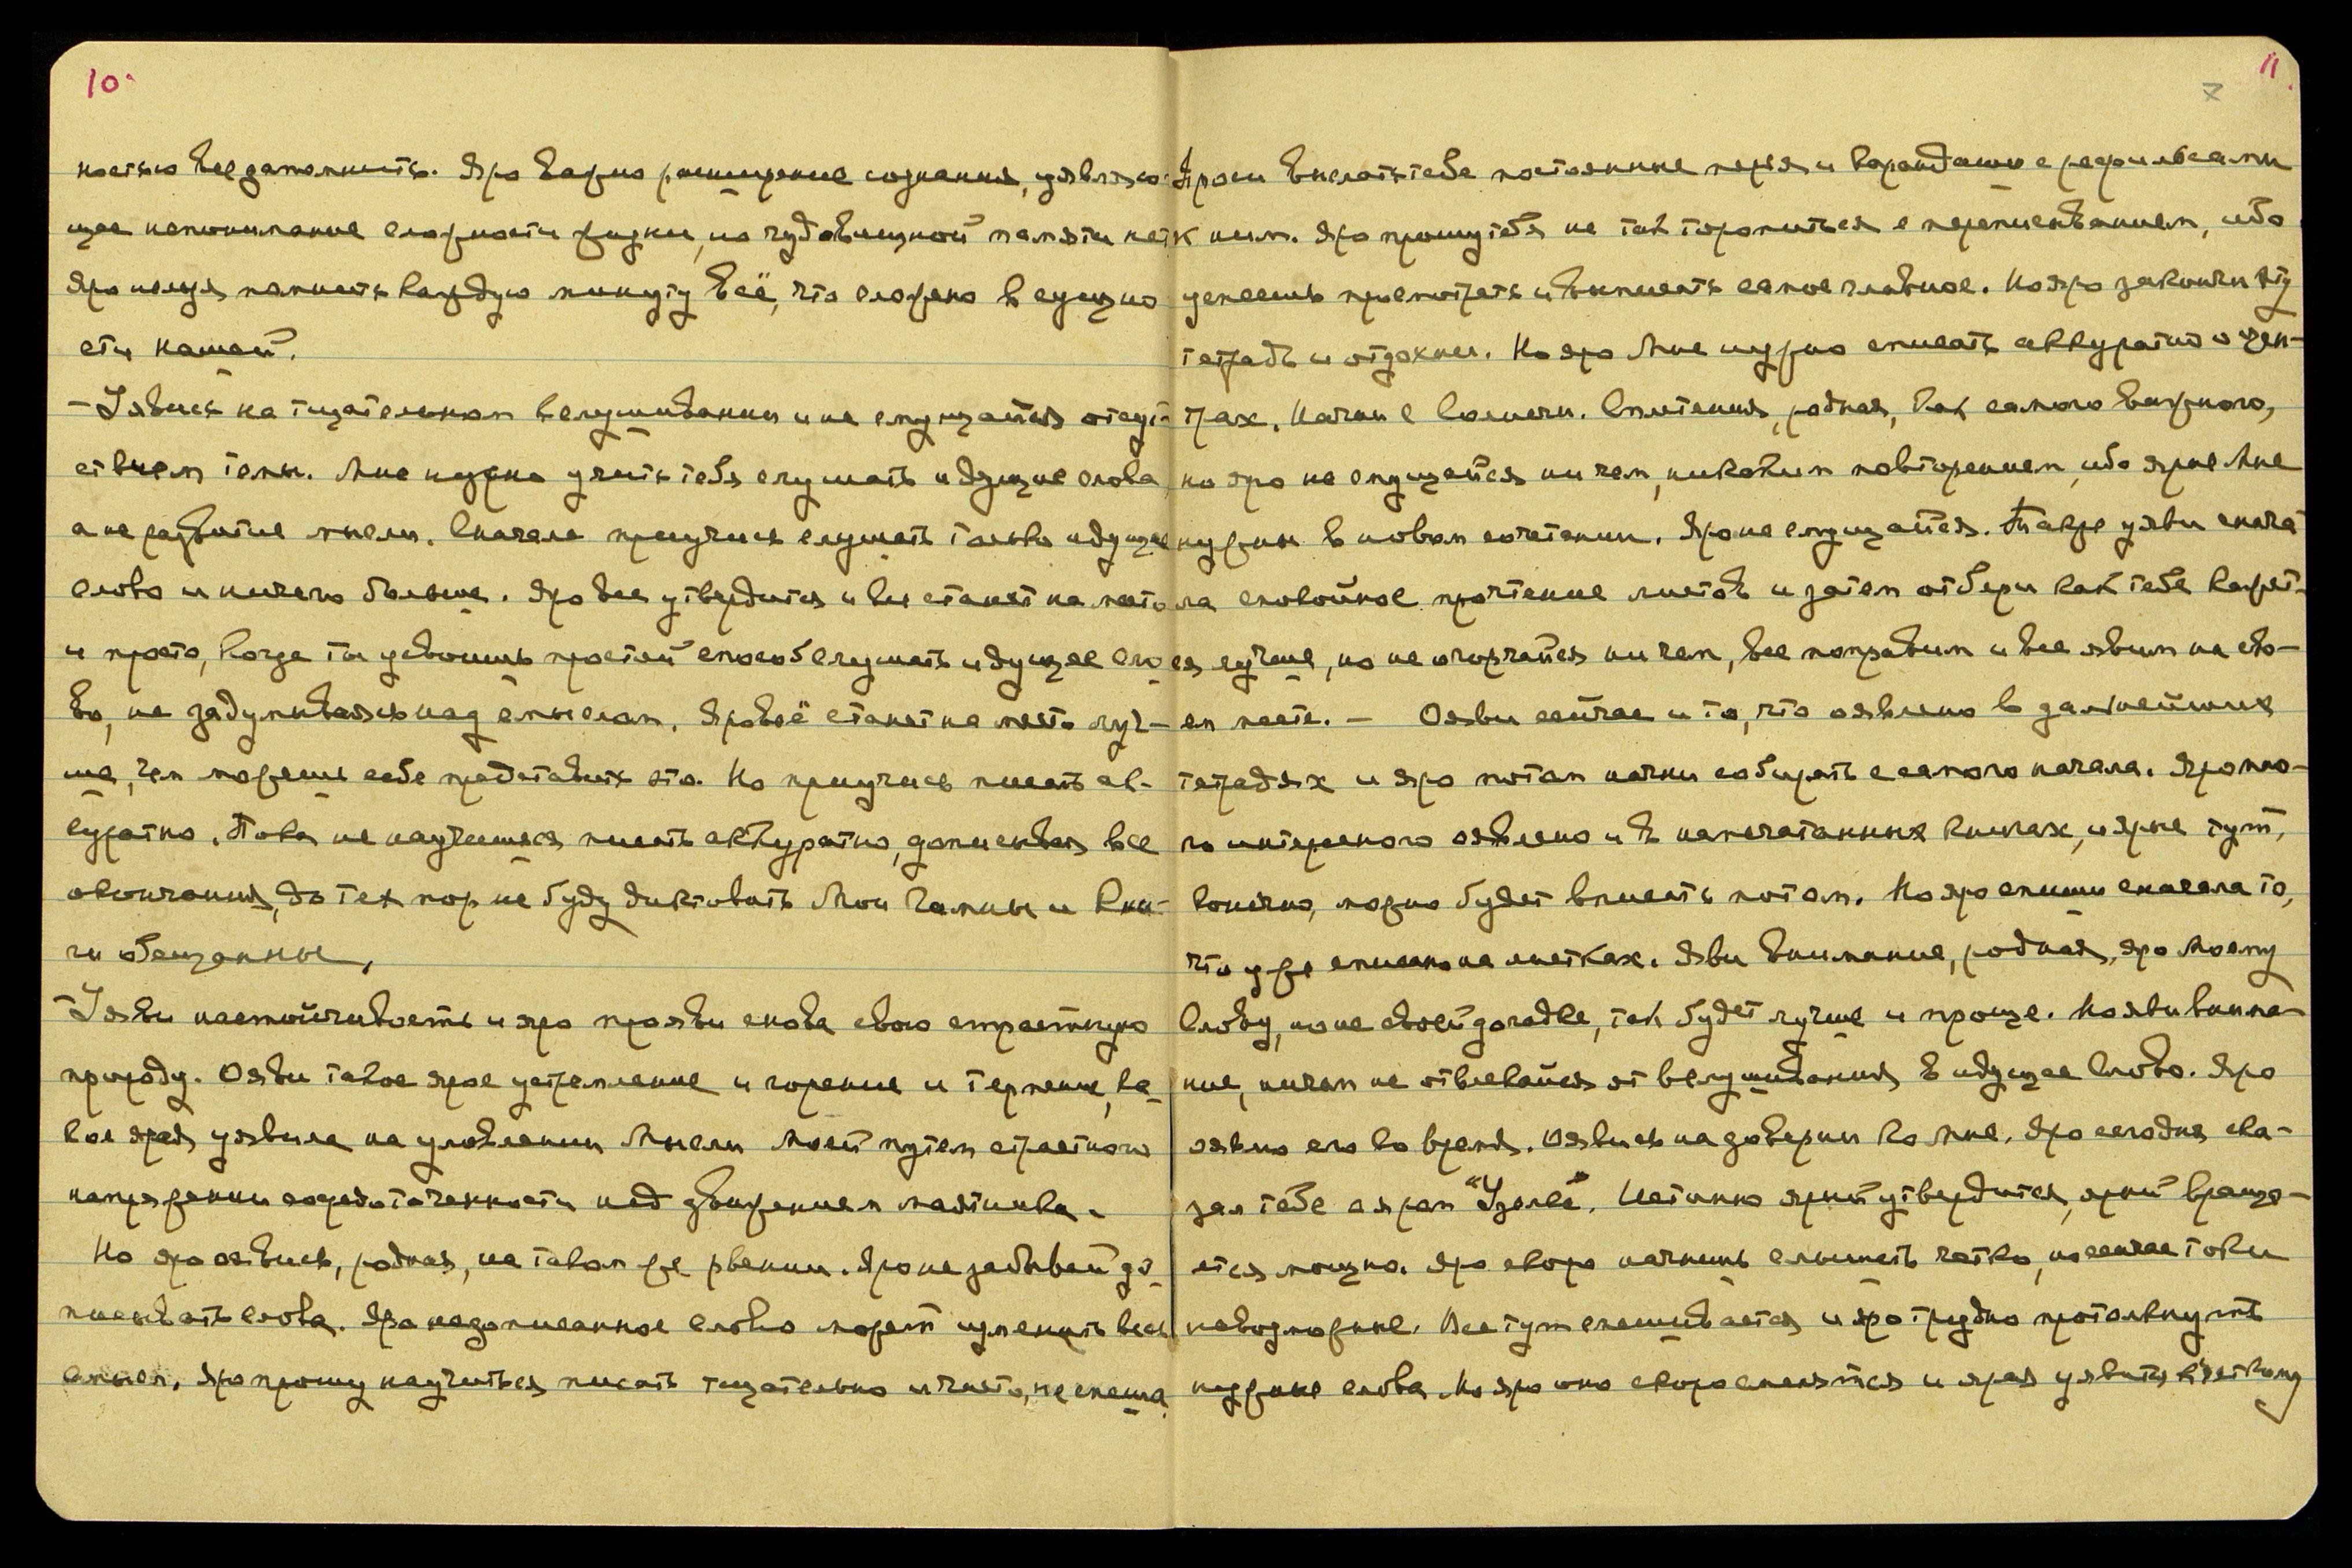 10.
ностью все запомнить. Яро важно расширение сознания, уявляю-
щее непонимание сложности жизни, но чудовищной памяти нет
Яро нельзя помнить каждую минуту всё, что сложено в сущно
сти нашей.
— Уявись на тщательном вслушивании и не смущайся отсут-
ствием темы. Мне нужно учить тебя слушать идущие слова,
а не развитие мысли. Сначала приучись слушать только идущее
слово и ничего больше. Яро все утвердится и все станет на место
и просто, когда ты усвоишь простой способ слушать идущее сло
во, не задумываясь над смыслом. Яро всё станет на место луч-
ше, чем можешь себе представить это. Но приучись писать ак-
куратно. Пока не научишься писать аккуратно, дописывая все
окончания, до тех пор не буду диктовать Мои Гимны и Кни-
ги обещанные.
— Уяви настойчивость и яро прояви снова свою страстную
природу. Ояви такое ярое устремление и горение и терпение, ка-
кое ярая уявила на уловлении Мысли Моей путем страстного
напряжении сосредоточенности над движением маятника.
Но яро оявись, родная, на таком же рвении. Яро не забывай до-
писывать слова. Яро недописанное слово может изменить весь
смысл. Яро прошу научиться писать тщательно и чисто, не спеша.
11.
7
Проси выслать тебе постоянные перья и карандаши с рефильсами
к ним. Яро прошу тебя не так торопиться с переписыванием, ибо
успеешь просмотреть и выписать самое главное. Но яро закончи эту
тетрадь и отдохни. Но яро Мне нужно списать аккуратно о цен-
трах. Начни с Кололечи. Сплетения, родная, как самого важного,
но яро не смущайся ничем, никаким повторением, ибо ярые Мне
нужны в новом сочетании. Яро не смущайся. Также уяви снача
ла спокойное прочтение листов и затем отбери как тебе кажет-
ся лучше, но не огорчайся ничем, все поправим и все явим на сво-
ем месте. — Ояви сейчас и то, что оявлено в дальнейших
тетрадях и яро потом начни собирать с самого начала. Яро мно-
го интересного оявлено и в напечатанных книгах, и ярые тут,
конечно, можно будет вписать потом. Но яро спиши сначала то,
что уже списано на листках. Яви внимание, родная, яро Моему
Слову, но не своей догадке, так будет лучше и проще. Но яви внима-
ние, ничем не отвлекайся от вслушивания в идущее Слово. Яро
оявлю его во время. Оявись на доверии ко Мне. Яро сегодня ска-
зал тебе о яром "Узелке". Истинно ярый утвердится, ярый враща-
ется мощно. Яро скоро начнешь слышать четко, но сейчас токи
невозможные. Все тут смешивается и яро трудно протолкнуть
нужные слова. Но яро они скоро сменятся и ярая уявится к четкому